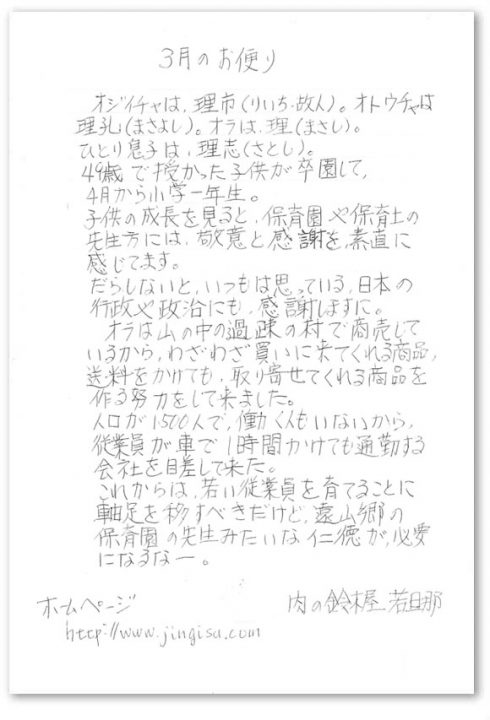 3月のお便り
オジイチャは、理市(りいち・故人)。オトウチャは
理孔(まさよし)。オラは、理(まさし)。
ひとり息子は、理志(さとし)。
49歳で授かった子供が卒園して、
4月から小学一年生。
子供の成長を見ると、保育園や保育士の
先生方には、敬意と感謝を、素直に
感じてます。
だらしないと、いつもは思っている、日本の
行政や政治にも、感謝しますに。
オラは山の中の過疎の村で商売して
いるから、わざわざ買いに来てくれる商品、
送料をかけても、取り寄せてくれる商品を
作る努力をして来ました。
人口が1500人で、働く人もいないから、
従業員が車で1時間かけても通勤する
会社を目差して来た。
これからは、若い従業員を育てることに
軸足を移すべきだけど、遠山郷の
保育園の先生みたいな仁徳が、必要
になるなー。
ホームページ
http://www.jingisu.com
肉の鈴木屋 若旦那